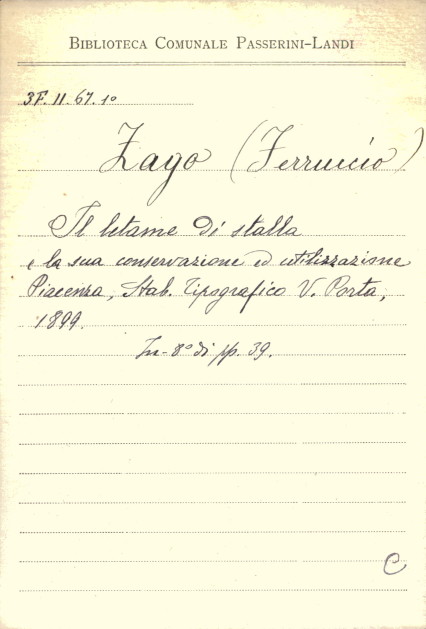 BIBLIOTECA COMUNALE PASSERINI-LANDI
3F. II. 67. 1º
Zago (Ferruccio)
Il letame di stalla
e la sua conservazione ed utilizzazione
Piacenza, Stab. Tipografico V. Porta,
1899.
In-8º di pp. 39.
C